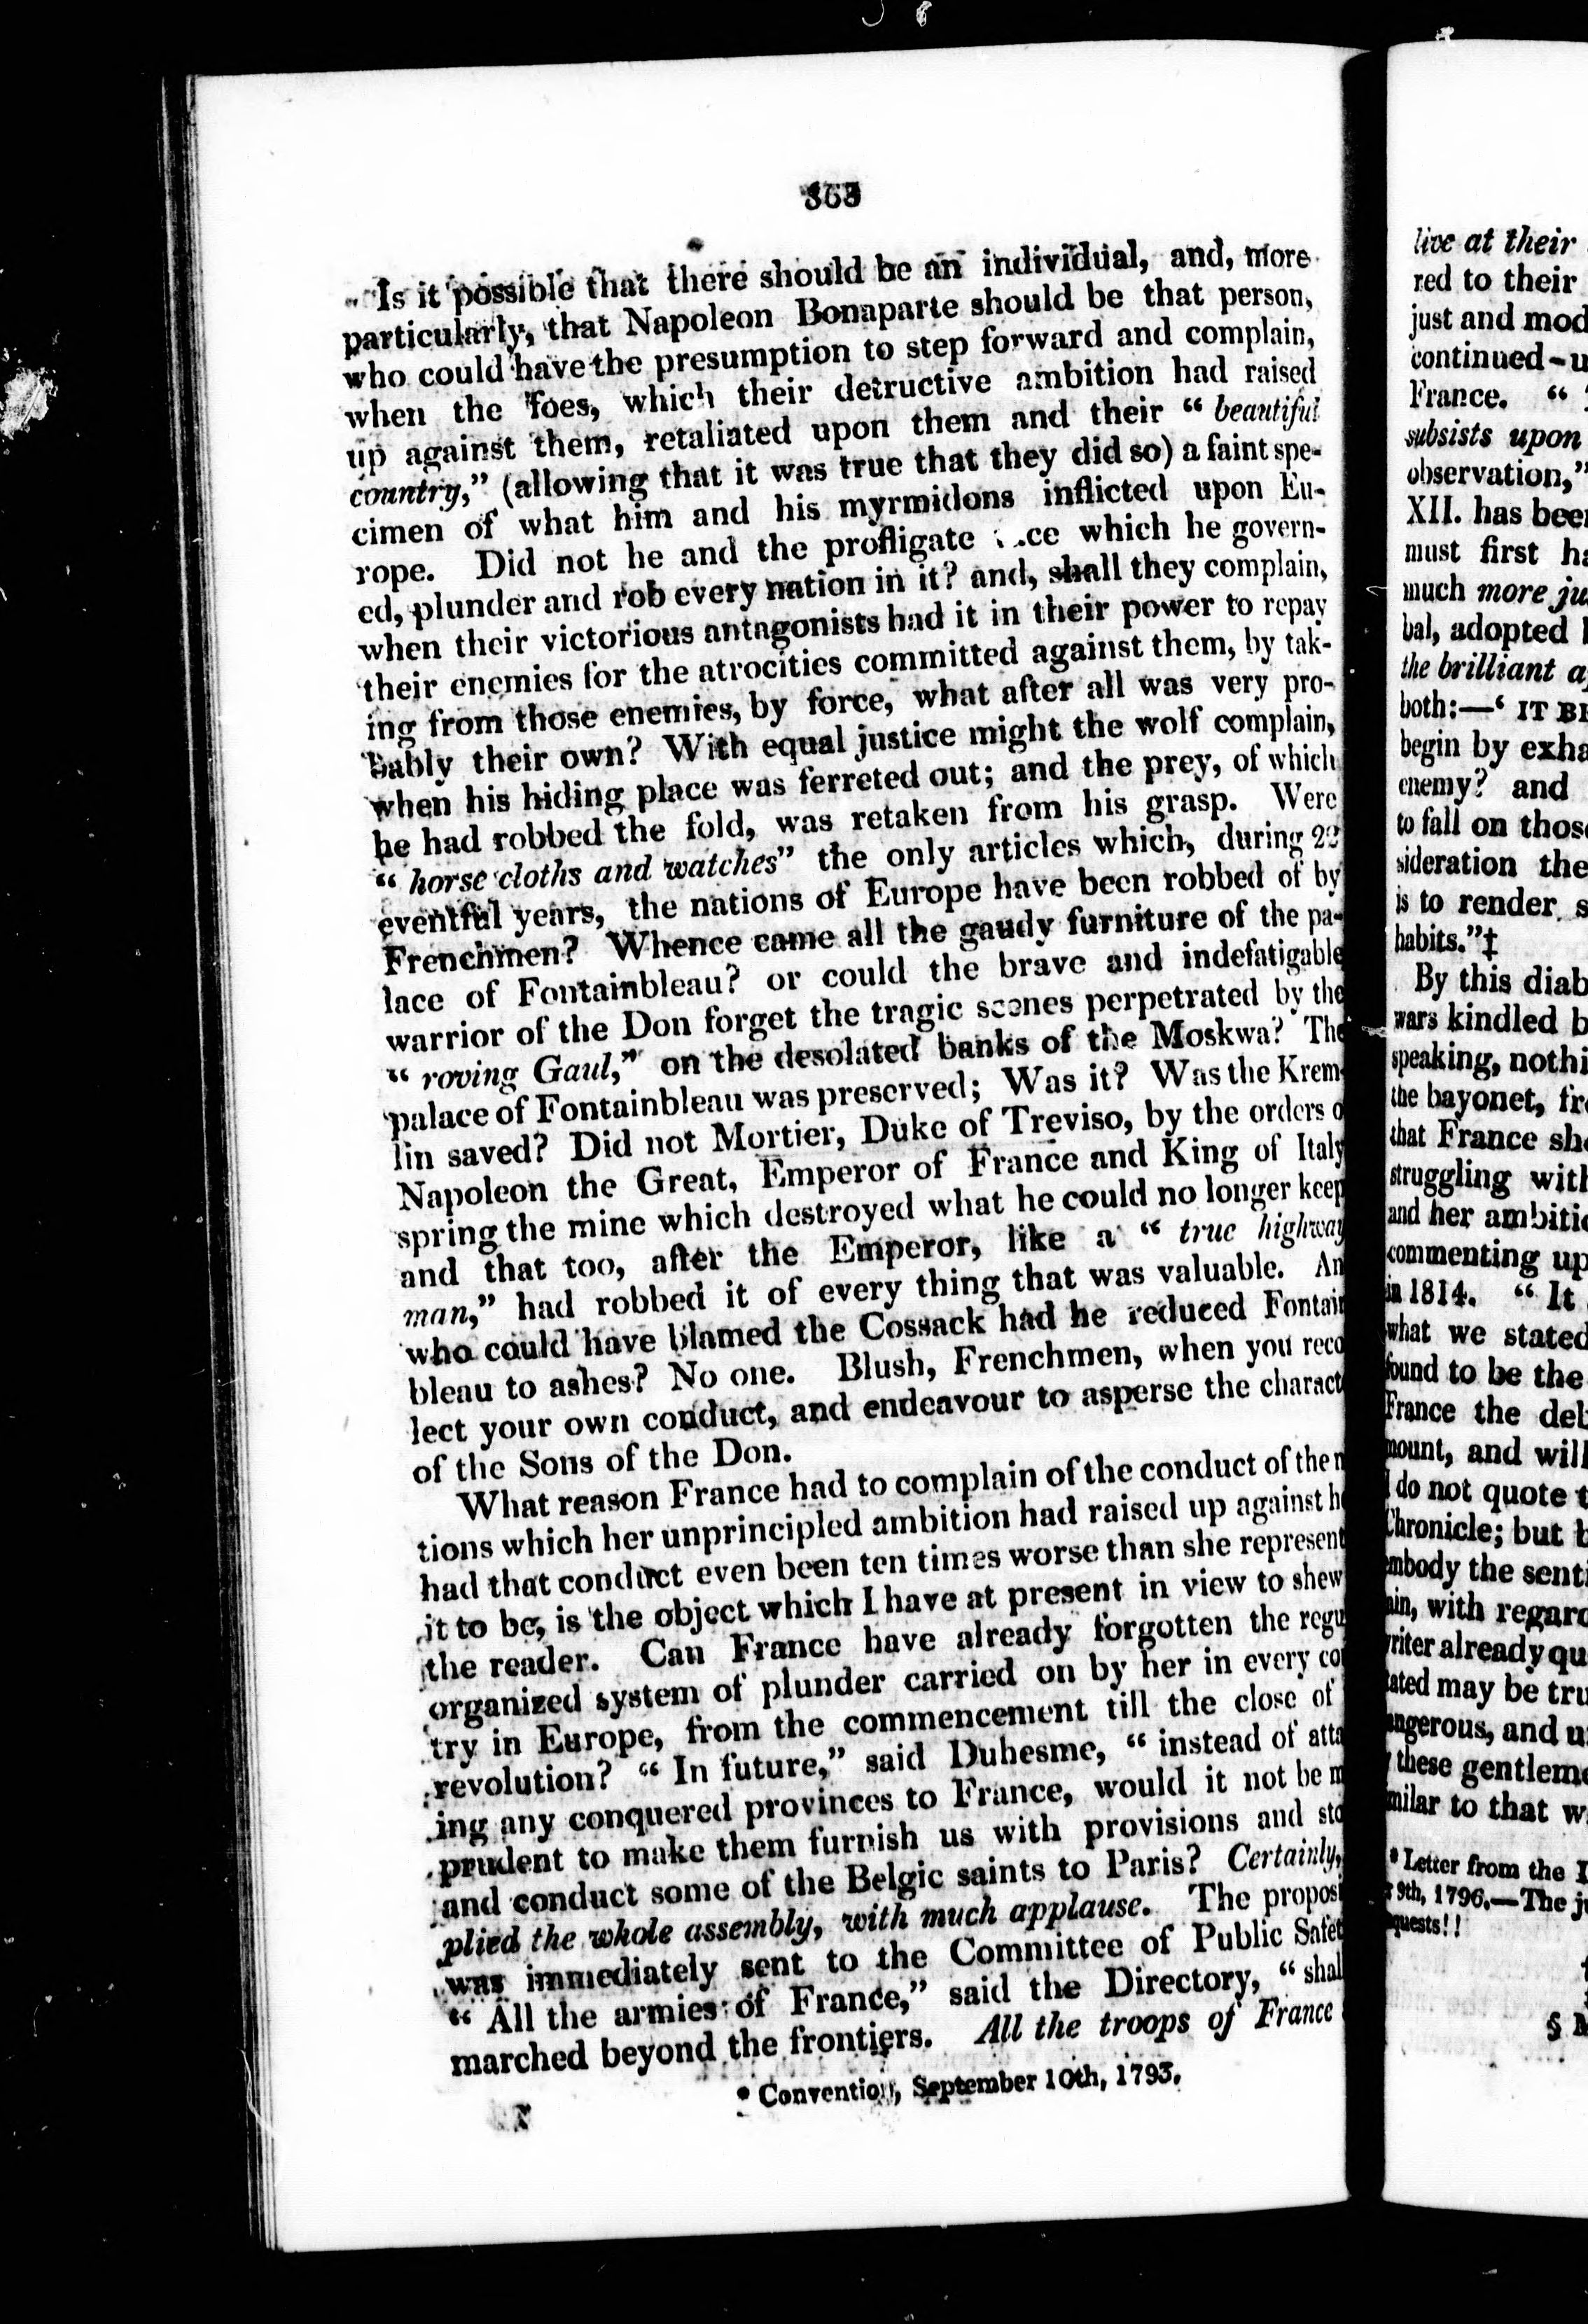 363
Is it possible that there should be an individual, and, more
particularly, that Napoleon Bonaparte should be that person,
who could have the presumption to step forward and complain,
when the foes, which their detructive ambition had raised
up against them, retaliated upon them and their “ beautiful
country,” (allowing that it was true that they did so) a faint spe-
cimen of what him and his myrmidons inflicted upon Eu-
rope. Did not he and the profligate which he govern-
ed, plunder and rob every nation in it? and, shall they complain,
when their victorious antagonists had it in their power to repay
their enemies for the atrocities committed against them, by tak-
ing from those enemies, by force, what after all was very pro-
bably their own? With equal justice might the wolf complain,
when his hiding place was ferreted out; and the prey, of which
he had robbed the fold, was retaken from his grasp. Were
“ horse cloths and watches” the only articles which, during 22
eventful years, the nations of Europe have been robbed of by
Frenchmen? Whence came all the gaudy furniture of the pa-
lace of Fontainbleau? or could the brave and indefatigable
warrior of the Don forget the tragic scenes perpetrated by the
“ roving Gaul,” on the desolated banks of the Moskwa? The
palace of Fontainbleau was preserved; Was it? Was the Krem-
lin saved? Did not Mortier, Duke of Treviso, by the orders o
Napoleon the Great, Emperor of France and King of Italy
spring the mine which destroyed what he could no longer keep
and that too, after the Emperor, like a “ true highway
man,” had robbed it of every thing that was valuable. An
who could have blamed the Cossack had he reduced Fontain
bleau to ashes? No one. Blush, Frenchmen, when you reco
lect your own conduct, and endeavour to asperse the charact
of the Sons of the Don.
What reason France had to complain of the conduct of the n
tions which her unprincipled ambition had raised up against h
had that conduct even been ten times worse than she represent
it to be, is the object which I have at present in view to shew
the reader. Can France have already forgotten the regu
organized system of plunder carried on by her in every co
try in Europe, from the commencement till the close of
revolution? “ In future,” said Duhesme, “ instead of atta
ing any conquered provinces to France, would it not be m
prudent to make them furnish us with provisions and sto
and conduct some of the Belgic saints to Paris? Certainly,
plied the whole assembly, with much applause. The proposi
was immediately sent to the Committee of Public Safet
“ All the armies of France,” said the Directory, “ shal
marched beyond the frontiers. All the troops of France
* Convention, September 10th, 1793.
live at their
red to their
just and mod
continued-u
France. “
subsists upon
observation,”
XII. has been
must first ha
much more ju
bal, adopted
the brilliant a
both:—‘ IT BE
begin by exha
enemy? and
to fall on those
sideration the
is to render s
habits.”‡
By this diab
wars kindled b
speaking, nothi
the bayonet, fr
that France sh
struggling with
and her ambitio
commenting up
in 1814. “ It
what we stated
found to be the
France the del
mount, and will
I do not quote t
Chronicle; but b
mbody the senti
ain, with regard
writer already qu
tated may be tru
angerous, and u
these gentleme
milar to that w
* Letter from the
9th, 1796.—The j
quests!!
§ M